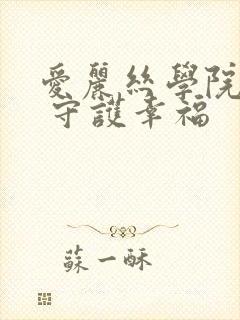 愛麗絲學院
守護幸福
蘇一酥